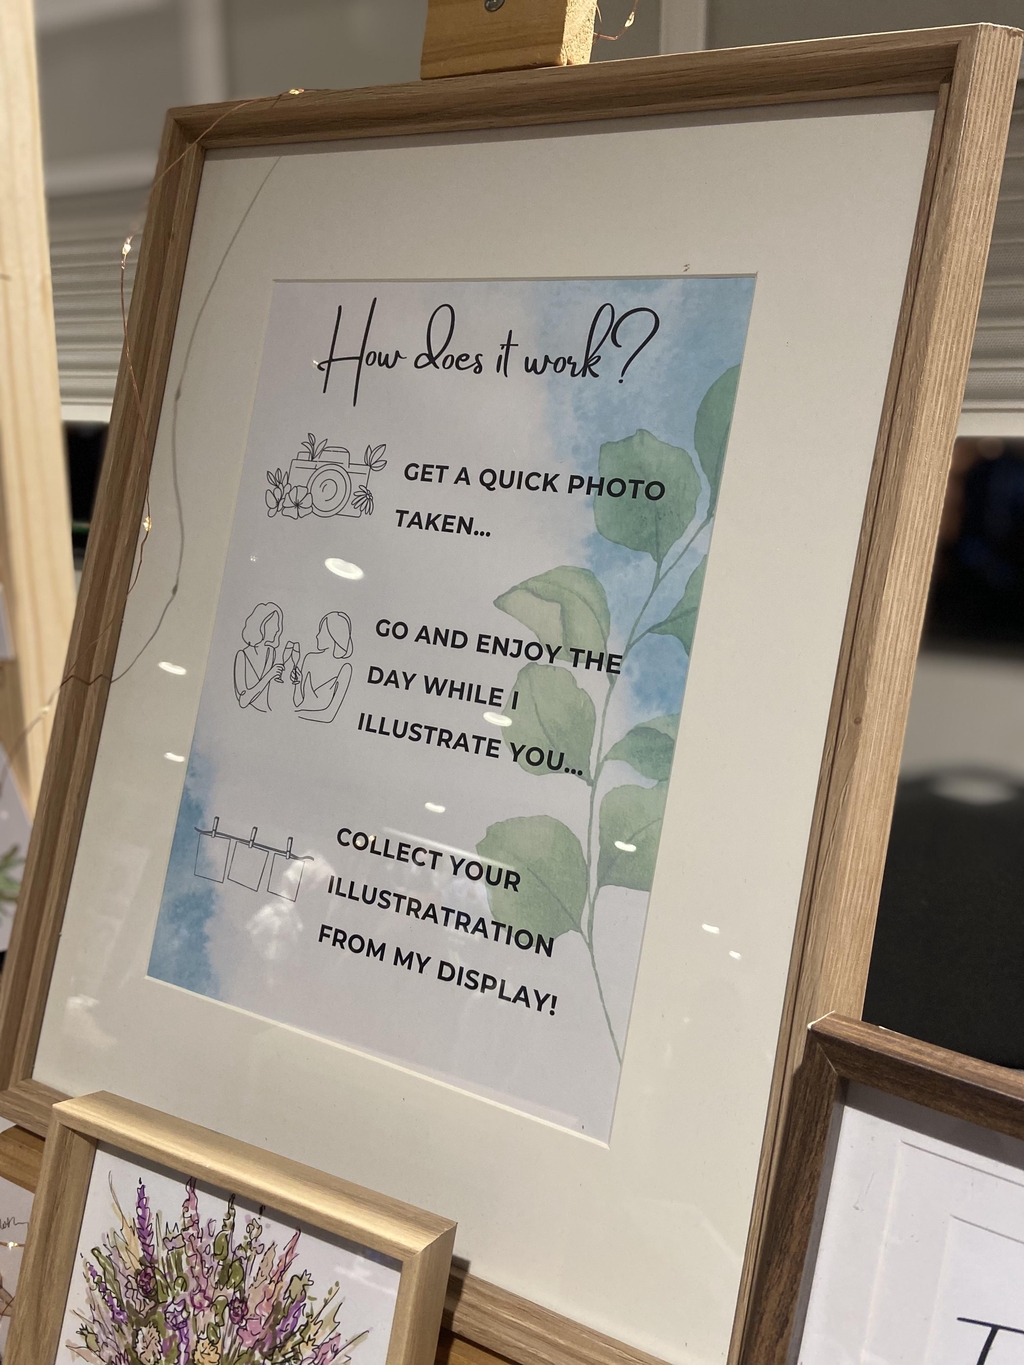 How does it work?
GET A QUICK PHOTO
TAKEN...
GO AND ENJOY THE
DAY WHILE I
ILLUSTRATE YOU...
COLLECT YOUR
ILLUSTRATRATION
FROM MY DISPLAY!